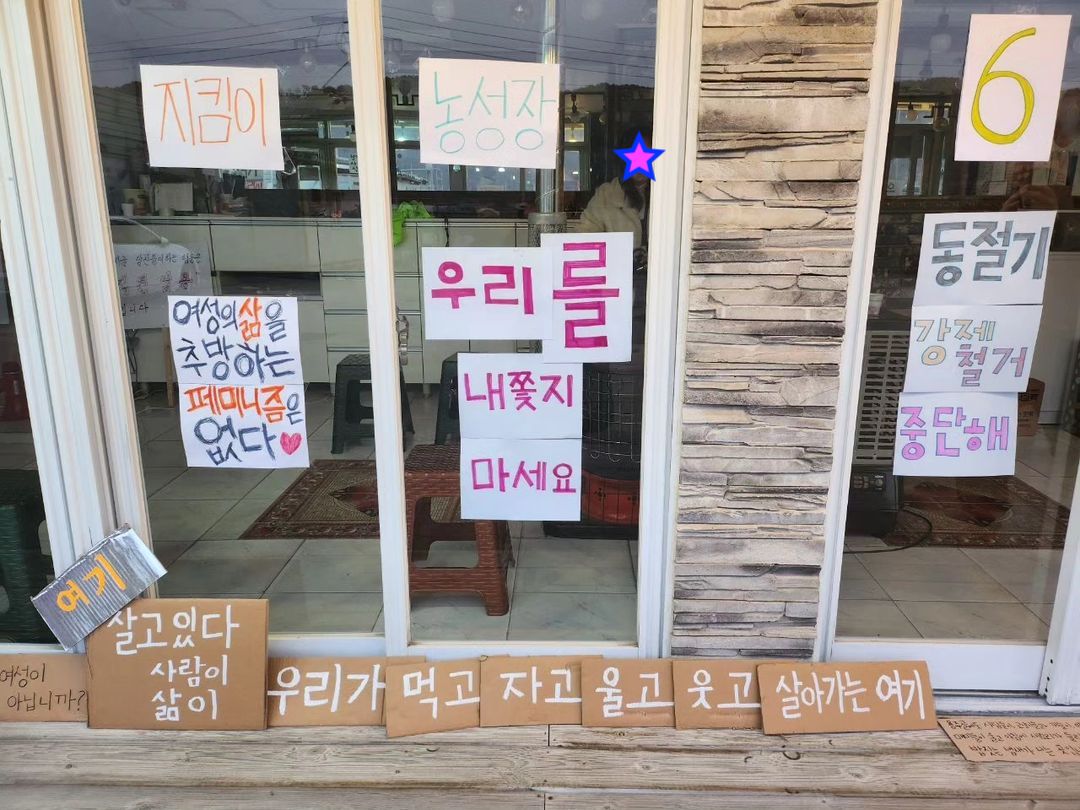 지킴이
농성장
6
여성의 삶을
추방하는
페미니즘은
없다
우리를
내쫓지
마세요
동절기
강제
철거
중단해
여기
살고있다
사람이
삶이
여성이
아닙니까?
우리가 먹고 자고 울고 웃고 살아가는 여기